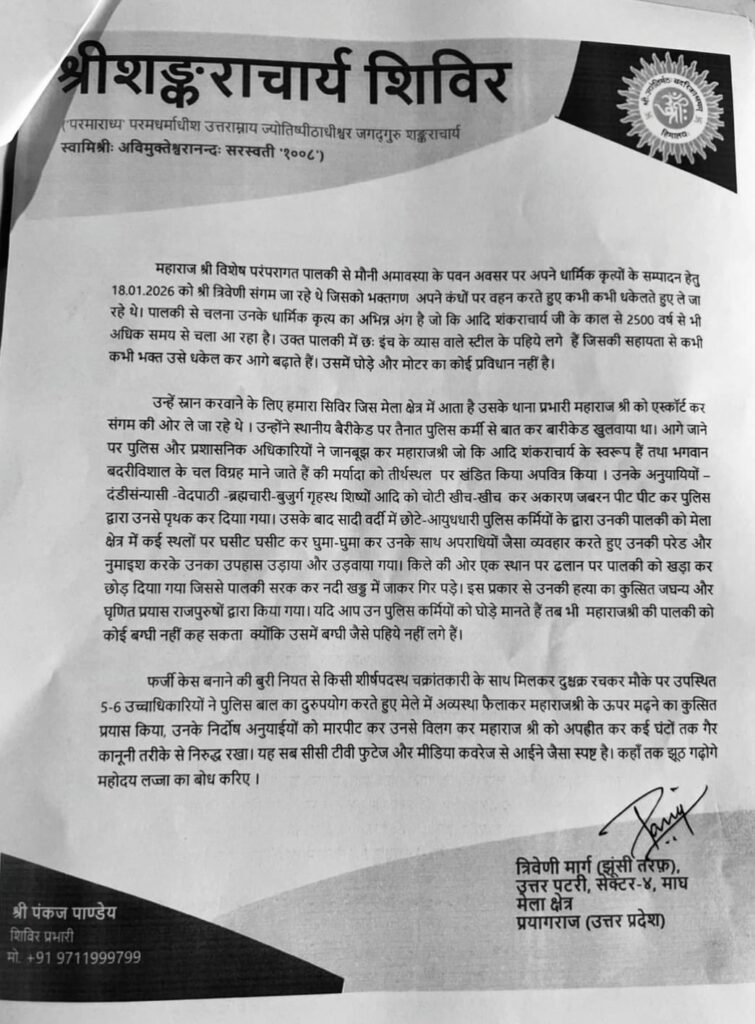 श्रीशङ्कराचार्य शिविर
('परमाराध्य' परमधर्माधीश उत्तराम्नाय ज्योतिष्पीठाधीश्वर जगद्गुरु शङ्कराचार्य
स्वामिश्रीः अविमुक्तेश्वरानन्दः सरस्वती '१००८')
श्री ज्योतिर्मठ बदरिकाश्रम
हिमालय
महाराज श्री विशेष परंपरागत पालकी से मौनी अमावस्या के पवन अवसर पर अपने धार्मिक कृत्यों के सम्पादन हेतु
18.01.2026 को श्री त्रिवेणी संगम जा रहे थे जिसको भक्तगण अपने कंधों पर वहन करते हुए कभी कभी धकेलते हुए ले जा
रहे थे। पालकी से चलना उनके धार्मिक कृत्य का अभिन्न अंग है जो कि आदि शंकराचार्य जी के काल से 2500 वर्ष से भी
अधिक समय से चला आ रहा है। उक्त पालकी में छः इंच के व्यास वाले स्टील के पहिये लगे हैं जिसकी सहायता से कभी
कभी भक्त उसे धकेल कर आगे बढ़ाते हैं। उसमें घोड़े और मोटर का कोई प्रविधान नहीं है।
उन्हें स्नान करवाने के लिए हमारा सिविर जिस मेला क्षेत्र में आता है उसके थाना प्रभारी महाराज श्री को एस्कॉर्ट कर
संगम की ओर ले जा रहे थे । उन्होंने स्थानीय बैरीकेड पर तैनात पुलिस कर्मी से बात कर बारीकेड खुलवाया था। आगे जाने
पर पुलिस और प्रशासनिक अधिकारियों ने जानबूझ कर महाराजश्री जो कि आदि शंकराचार्य के स्वरूप हैं तथा भगवान
बदरीविशाल के चल विग्रह माने जाते हैं की मर्यादा को तीर्थस्थल पर खंडित किया अपवित्र किया । उनके अनुयायियों –
दंडीसंन्यासी -वेदपाठी -ब्रह्मचारी-बुजुर्ग गृहस्थ शिष्यों आदि को चोटी खीच-खीच कर अकारण जबरन पीट पीट कर पुलिस
द्वारा उनसे पृथक कर दियाा गया। उसके बाद सादी वर्दी में छोटे-आयुधधारी पुलिस कर्मियों के द्वारा उनकी पालकी को मेला
क्षेत्र में कई स्थलों पर घसीट घसीट कर घुमा-घुमा कर उनके साथ अपराधियों जैसा व्यवहार करते हुए उनकी परेड और
नुमाइश करके उनका उपहास उड़ाया और उड़वाया गया। किले की ओर एक स्थान पर ढलान पर पालकी को खड़ा कर
छोड़ दियाा गया जिससे पालकी सरक कर नदी खड्ड में जाकर गिर पड़े। इस प्रकार से उनकी हत्या का कुत्सित जघन्य और
घृणित प्रयास राजपुरुषों द्वारा किया गया। यदि आप उन पुलिस कर्मियों को घोड़े मानते हैं तब भी महाराजश्री की पालकी को
कोई बग्घी नहीं कह सकता क्योंकि उसमें बग्घी जैसे पहिये नहीं लगे हैं।
फर्जी केस बनाने की बुरी नियत से किसी शीर्षपदस्थ चक्रांतकारी के साथ मिलकर दुश्चक्र रचकर मौके पर उपस्थित
5-6 उच्चाधिकारियों ने पुलिस बाल का दुरुपयोग करते हुए मेले में अव्यस्था फैलाकर महाराजश्री के ऊपर मढ़ने का कुत्सित
प्रयास किया, उनके निर्दोष अनुयाईयों को मारपीट कर उनसे विलग कर महाराज श्री को अपह्रीत कर कई घंटों तक गैर
कानूनी तरीके से निरुद्ध रखा। यह सब सीसी टीवी फुटेज और मीडिया कवरेज से आईने जैसा स्पष्ट है। कहाँ तक झूठ गढ़ोगे
महोदय लज्जा का बोध करिए ।
त्रिवेणी मार्ग (झूंसी तरफ़),
उत्तर पटरी, सेक्टर-४, माघ
मेला क्षेत्र
प्रयागराज (उत्तर प्रदेश)
श्री पंकज पाण्डेय
शिविर प्रभारी
मो. +91 9711999799